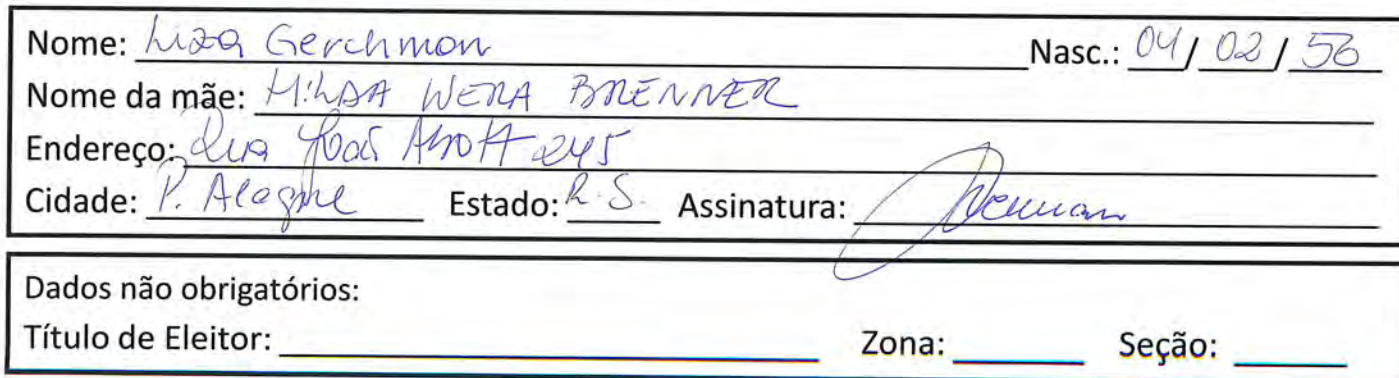 Nome: Liza Gerchmon Nasc.: 04/02/56
Nome da mãe: HILDA WERA BRENNER
Endereço: Rua João Abott 245
Cidade: P. Alegre Estado: R.S. Assinatura:
Dados não obrigatórios:
Título de Eleitor: Zona: Seção: